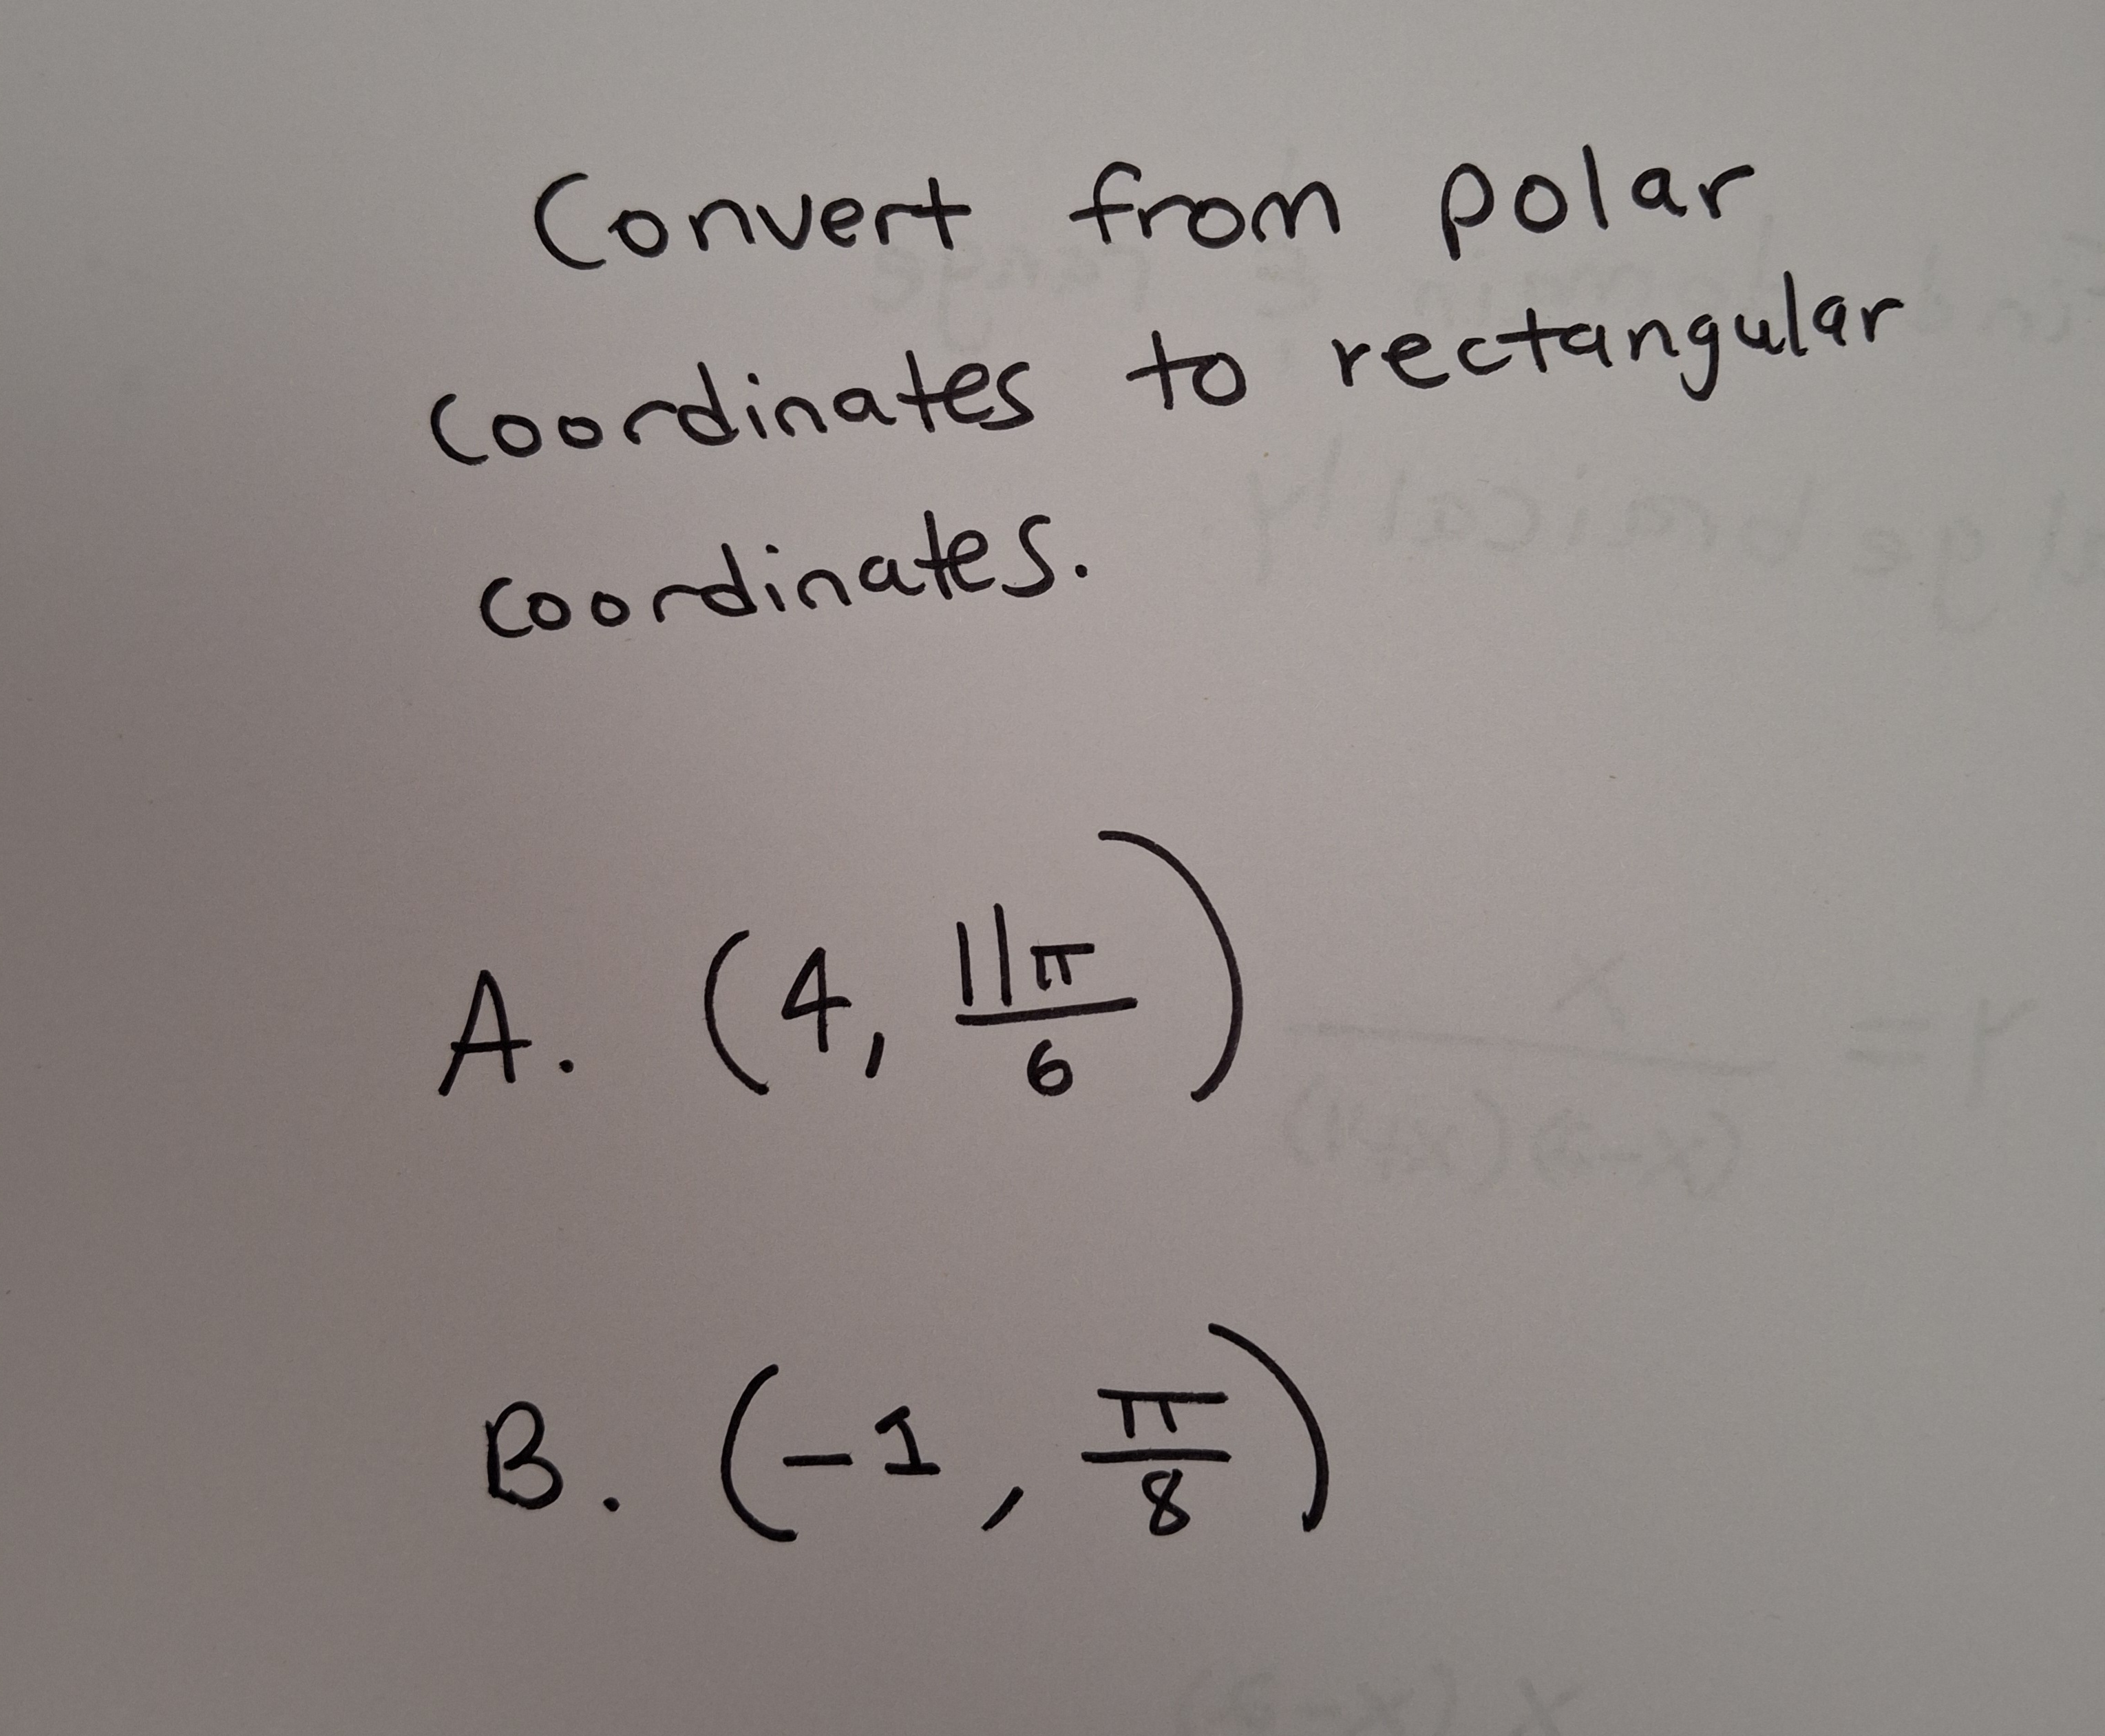 Convert from polar
coordinates to rectangular
coordinates.
A. (4, 11π/6)
B. (-1, π/8)